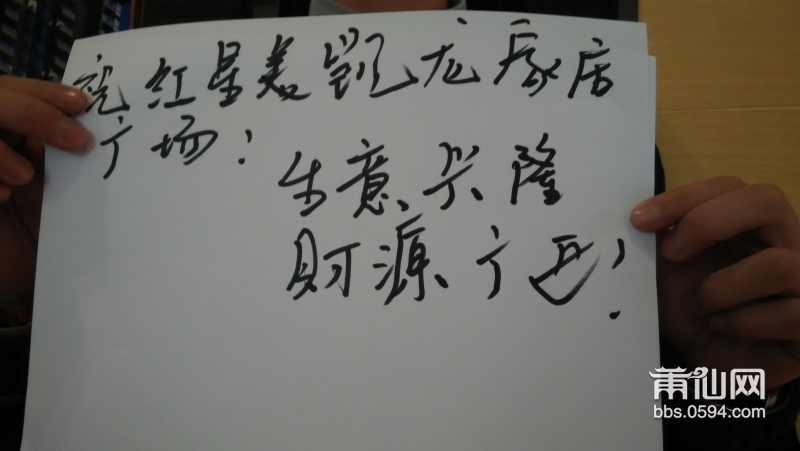 祝红星美凯龙家居
广场：
生意兴隆
财源广进！
莆仙网
bbs.0594.com